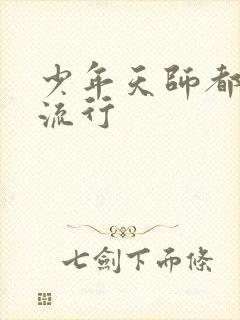 少年天師都
流行
七劍下而條